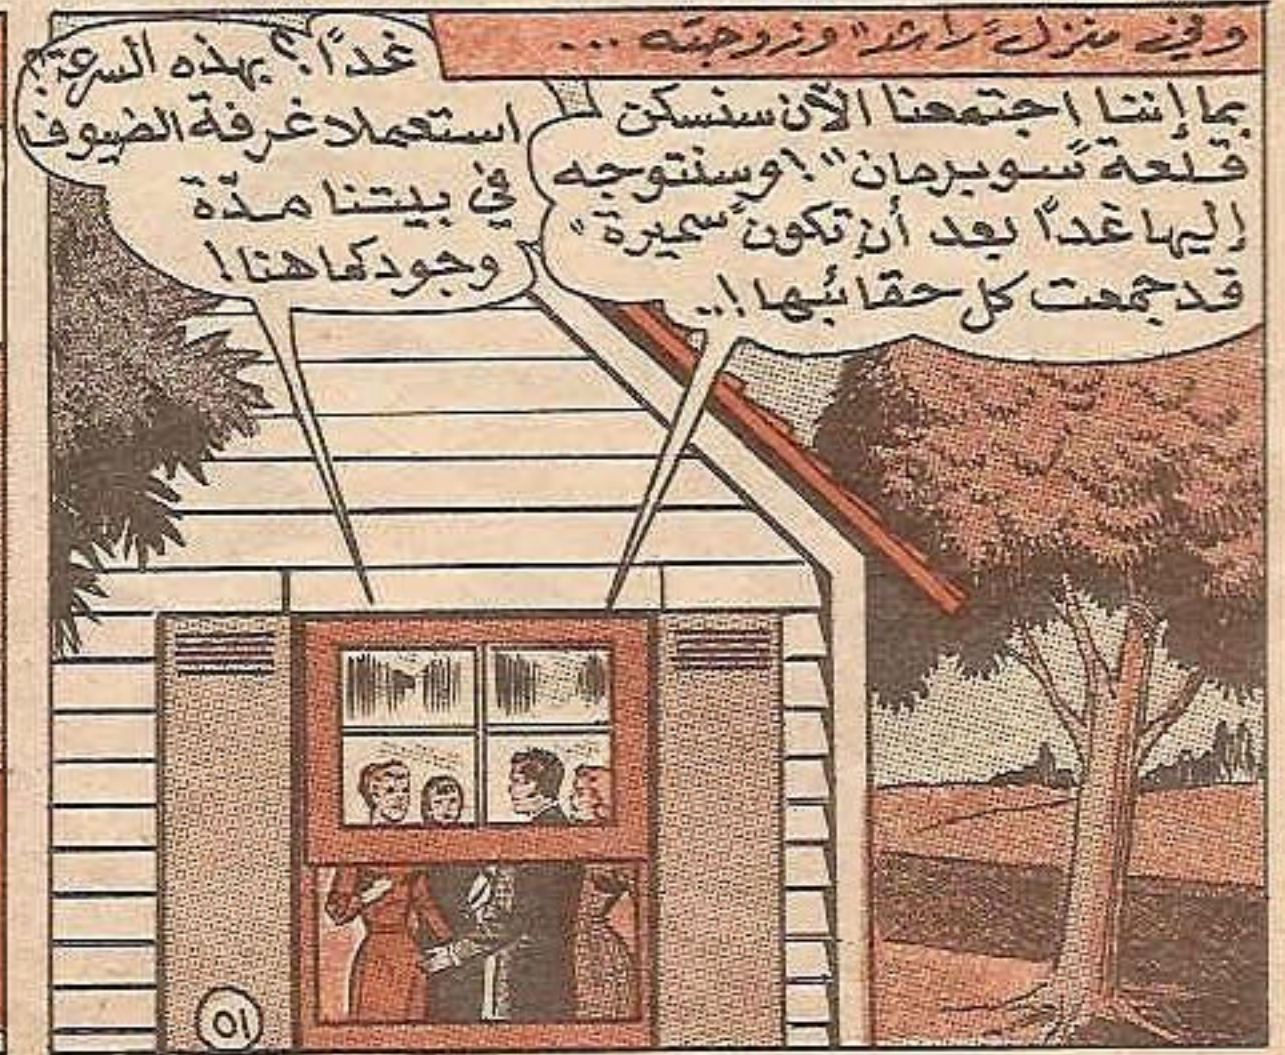 وفي منزل "راشد" وزوجته ...
بما إننا اجتمعنا الآن سنسكن
قلعة "سوبرمان"! وسنتوجه
إليها غدًا بعد أن تكون "سميرة"
قد جمعت كل حقائبها!..
غدًا؟ بهذه السرعة؟!
استعملا غرفة الضيوف
في بيتنا مدّة
وجودكما هنا!
٥١